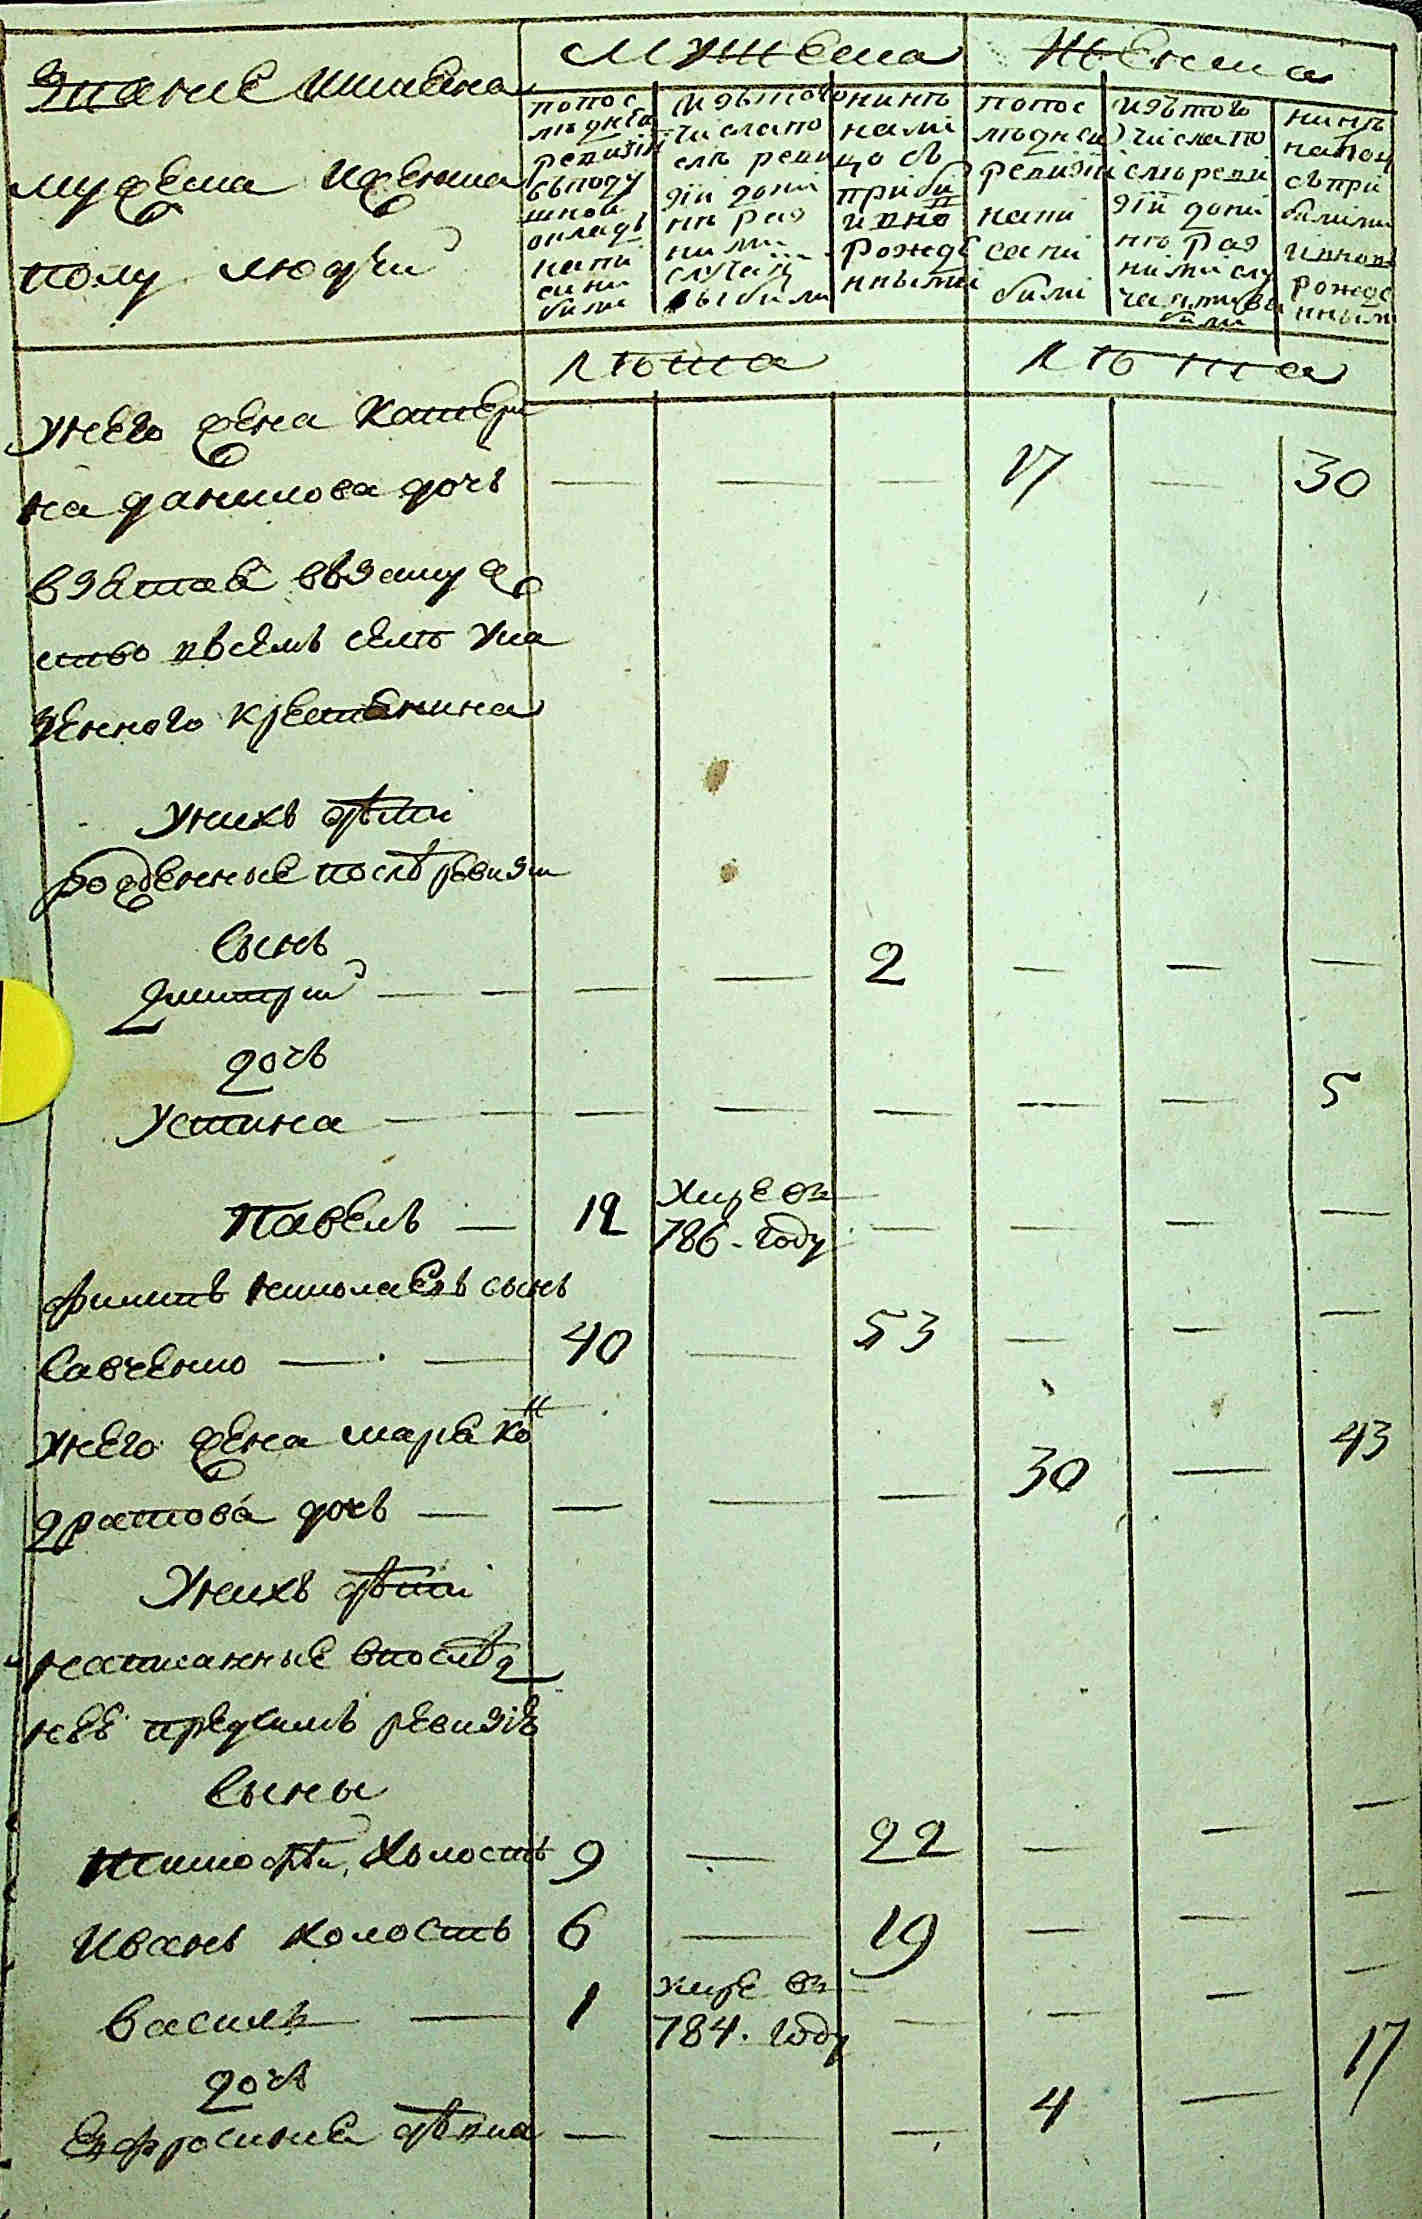 Звание и имена
мужеска и женска
полу людей
Мужеска
Женска
попос
лѣдней
ревизіи
въ поду
шной
окладъ
напи
сани
были
изъ того
числа по
слѣ реви
зіи дони
нѣ раз
ними
случаи
выбыли
нинѣ
на ли
цо съ
прибы
и вно
рожде
нными
попос
лѣдней
ревизіи
напи
сани
были
изъ того
числа по
слѣ реви
зіи дони
нѣ раз
ними слу
чаями вы
были
нинѣ
на лиц
съ при
былими
и вновь
рожде
нными
Лѣта
Лѣта
У него жена Катери
на Данилова дочь — — — 17 — 30
взятая въ замуже
ство в семъ селѣ у ка
зенного крестянина
У нихъ дѣти
рожденные послѣ ревизіи
сынъ
Дмитрий — — — — 2 — — —
дочь
Устина — — — — — — — 5
Павелъ — 12 умре въ
786. году — — — —
Филипъ Николаевъ сынъ
Савченко — — 40 — 53 — — —
У него жена Маря Кон
дратова дочь — — — — 30 — 43
У нихъ дѣти
написанные в послѣд
нее предсимъ ревизіе
сыны
Тимофѣй, холостъ 9 — 22 — — —
Иванъ холостъ 6 — 19 — — —
Василь — 1 умре въ
784. году — — — —
дочь
Евфросиния дѣвка — — — 4 — 17